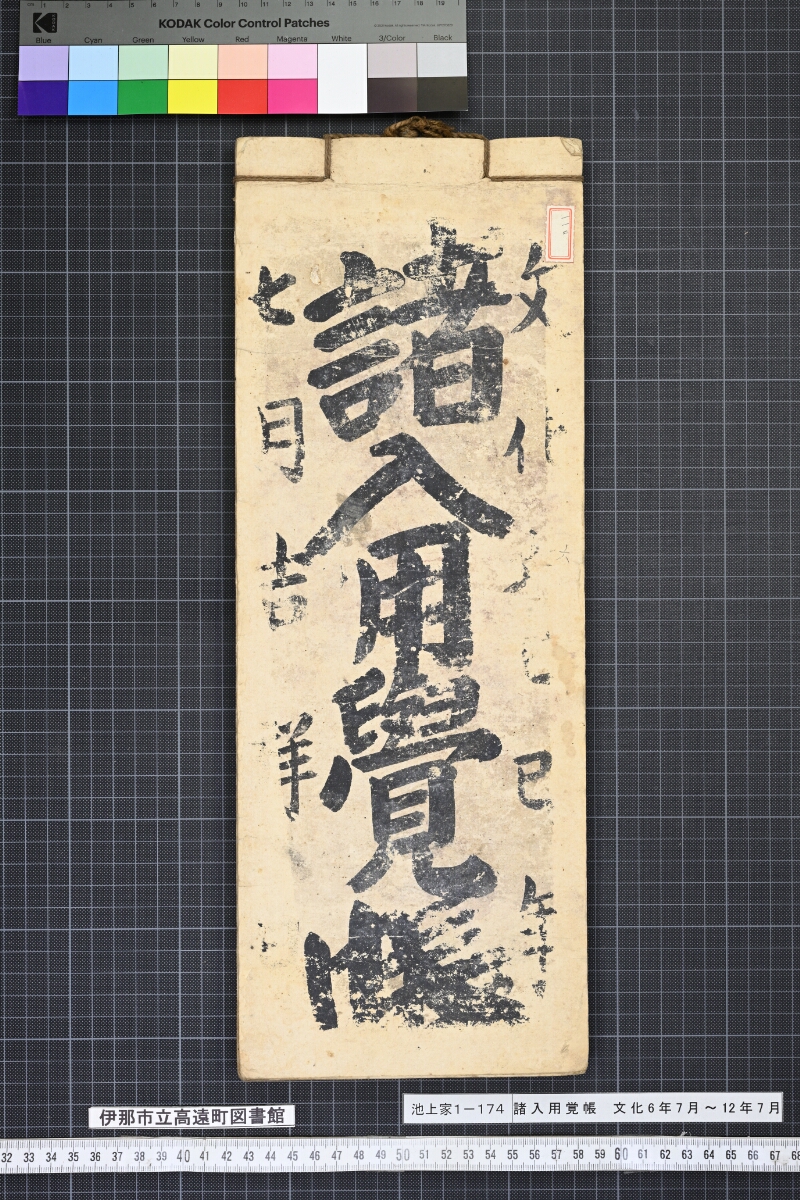 KODAK Color Control Patches
Blue Cyan Green Yellow Red Magenta White 3/Color Black
文化 己巳年
諸入用覺帳
七月吉祥
伊那市立高遠町図書館
池上家1－174 諸入用覚帳 文化6年7月～12年7月
32 33 34 35 36 37 38 39 40 41 42 43 44 45 46 47 48 49 50 51 52 53 54 55 56 57 58 59 60 61 62 63 64 65 66 67 68